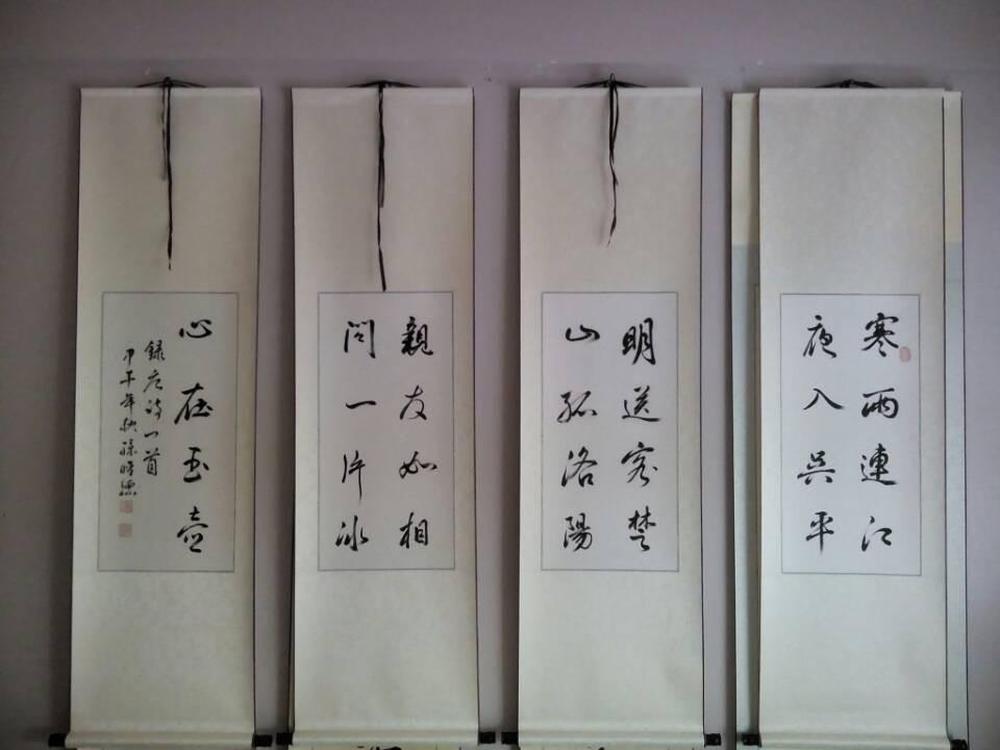 寒雨連江
夜入吳平
明送客楚
山孤洛陽
親友如相
問一片冰
心在玉壺
錄唐詩一首
甲午年秋